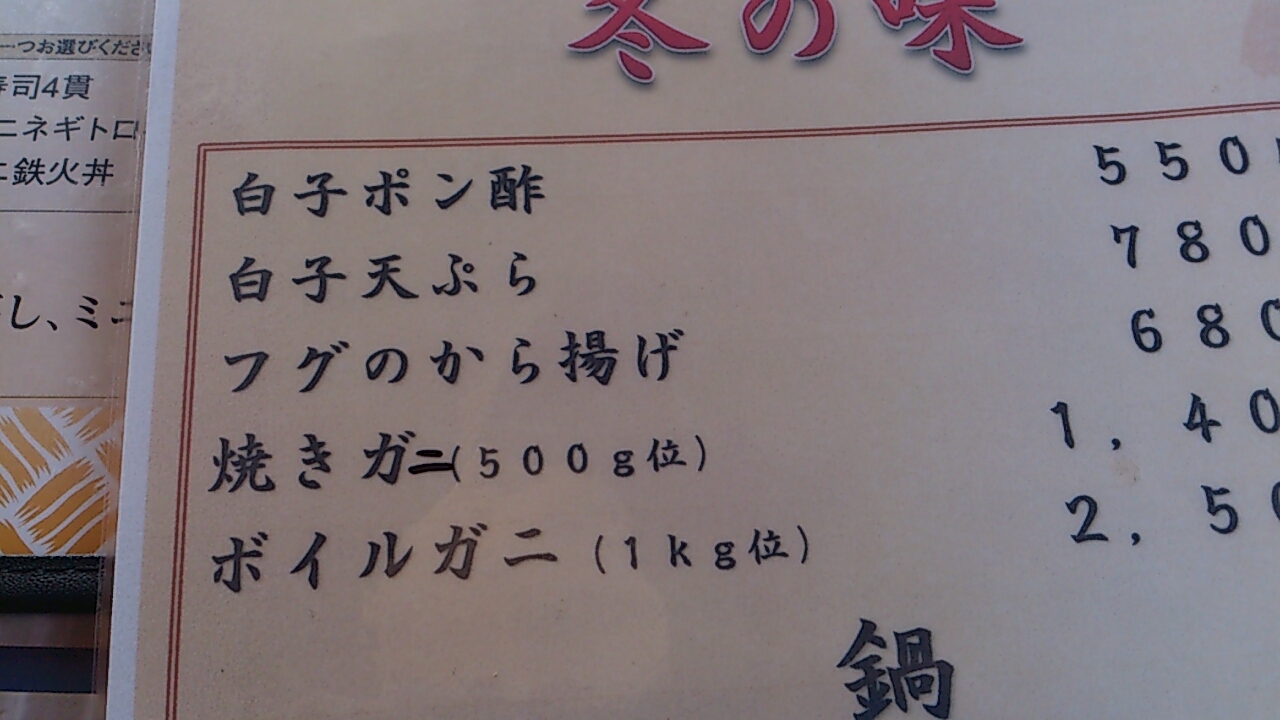 冬の味
一つお選びくださ
司4貫
ニネギトロ
鉄火丼
し、ミニ
白子ポン酢 550
白子天ぷら 780
フグのから揚げ 680
焼きガニ(500g位) 1,40
ボイルガニ(1kg位) 2,50
鍋